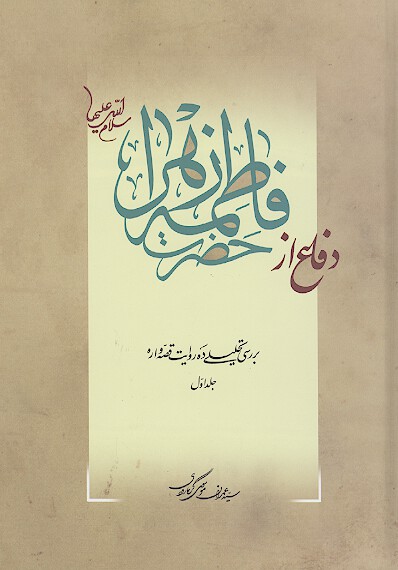 دفاع از
حضرت فاطمه زهرا
سلام الله علیها
بررسی تحلیلی ده روایت قصّه‌واره
جلد اوّل
سید عمران موسوی